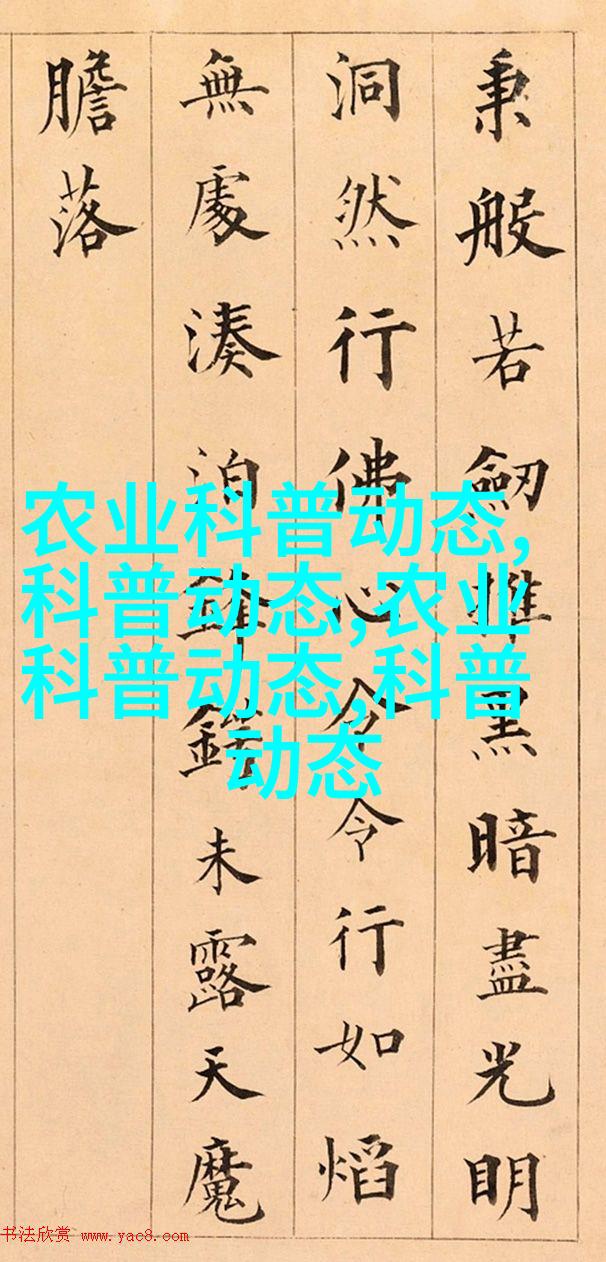 秉般若劒摧黑暗盡光明
洞然行佛心令令行如熖
無處湊泊鋒鍔未露天魔
膽落
农业科普动态,
科普动态,农业
科普动态,科普
动态
书法欣赏 www.yac8.com